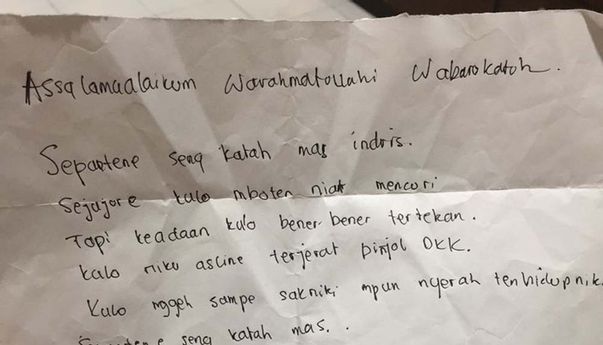 Assalamaalaikum Warahmatoulahi Wabarokatoh.
Sepantene seng katah mas indris.
Sejujore kulo mboten niat mencuri
Tapi keadaan kulo bener-bener tertekan.
kulo niku asline terjerat pinjol OKK.
Kulo nggeh sampe sakniki mpun nyerah tenhidupnik
seng katah mas..